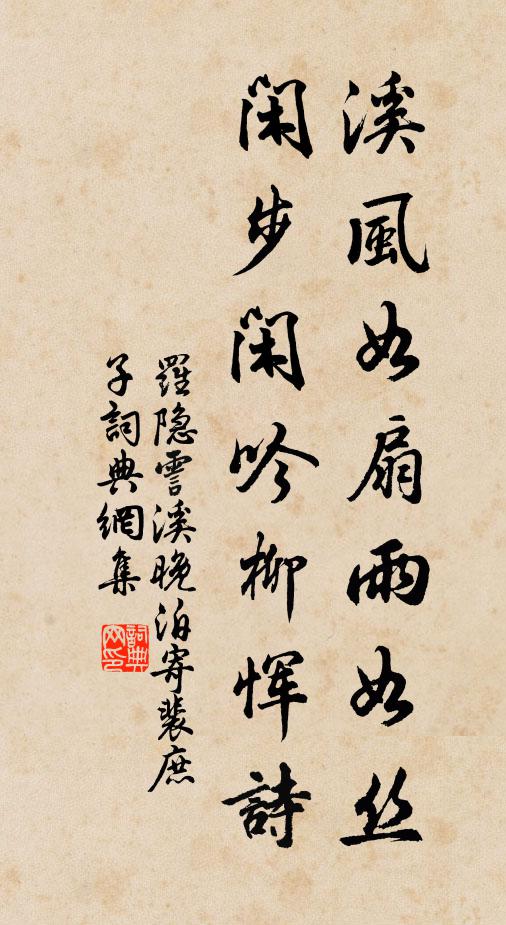 溪風如扇雨如丝
閑步閑吟柳惲詩
羅隐霅溪晚泊寄裴庶
子詞典網集
詞典网印